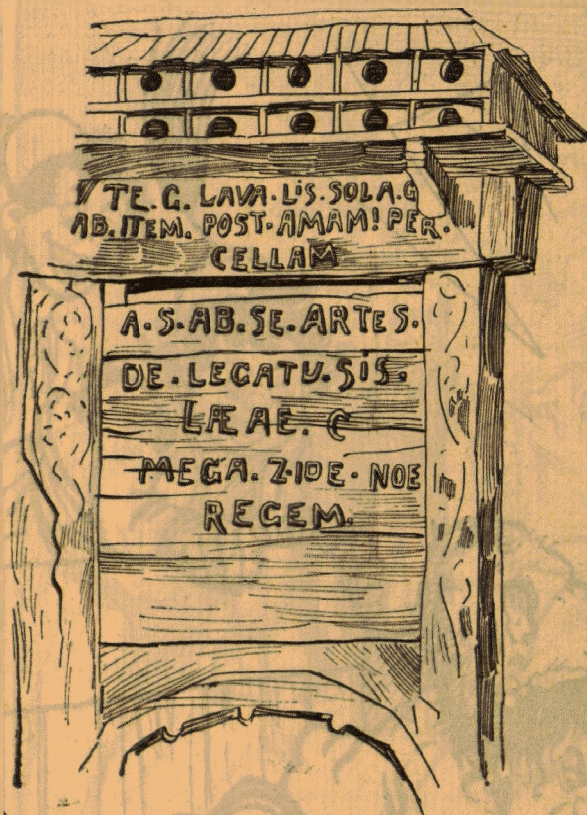 TE. G. LAVA. LIS. SOLA. G
AB. ITEM. POST. AMAM! PER.
CELLAM
A. S. AB. SE. ARTES.
DE. LEGATU. SIS.
LÆ AE. C
MEGA. Z. IDE. NOE
REGEM.